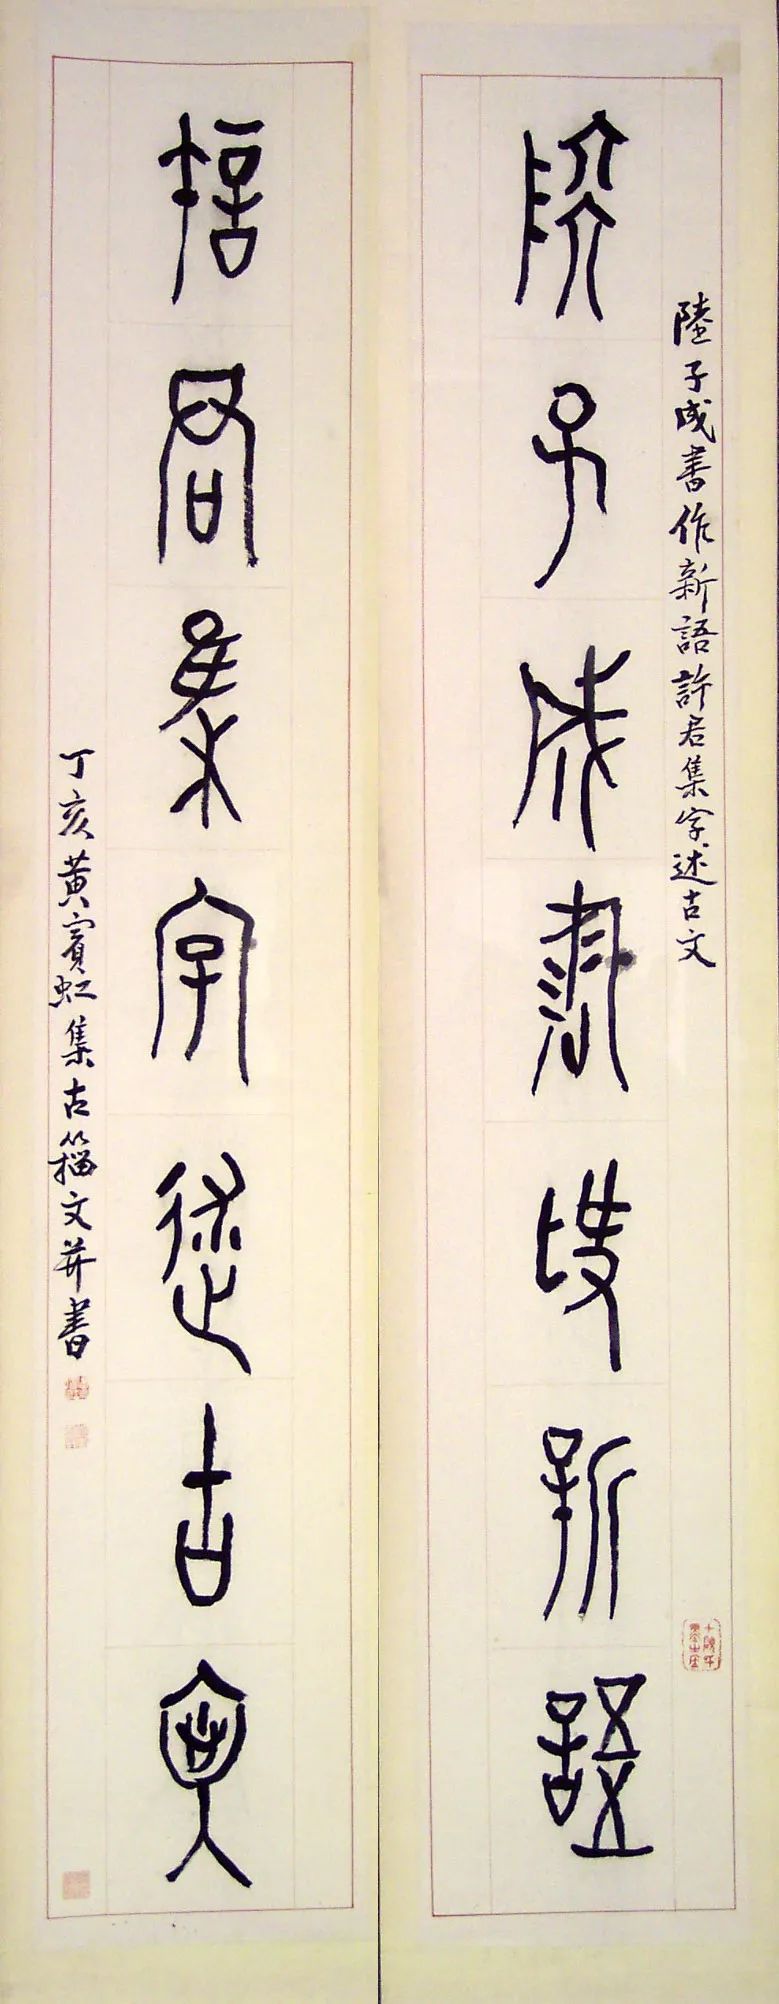 陸子成書作新語許君集字述古文
陸子成書作新語
許君集字述古文
丁亥黃賓虹集古籀文并書